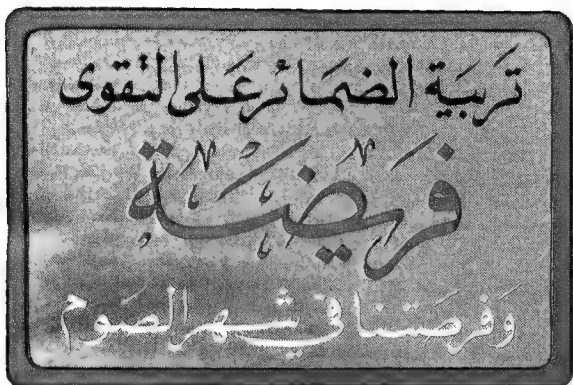 تَربيَة الضمَائر عَلى التقوى
فريضَة
وَفرصَتنا في شهر الصَوم